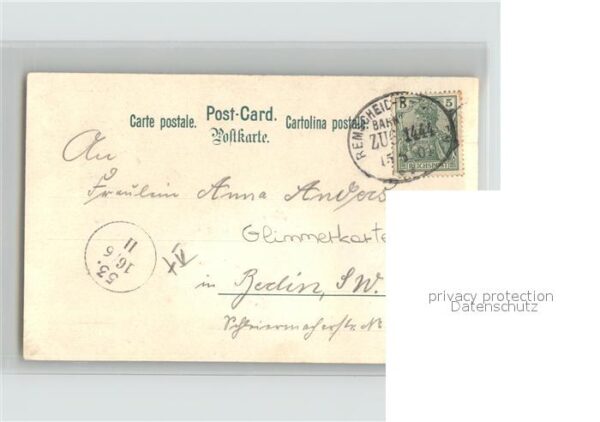 Carte postale. Post-Card. Cartolina postale
Postkarte.
REMSCHEID-B
BAHN
ZUG 1444
15
5
REICHSPOST
An
Fräulein Anna Anders
Glimmerkarte
in Berlin, S.W.
Schleiermacherstr. No
53.
16/6
II
privacy protection
Datenschutz